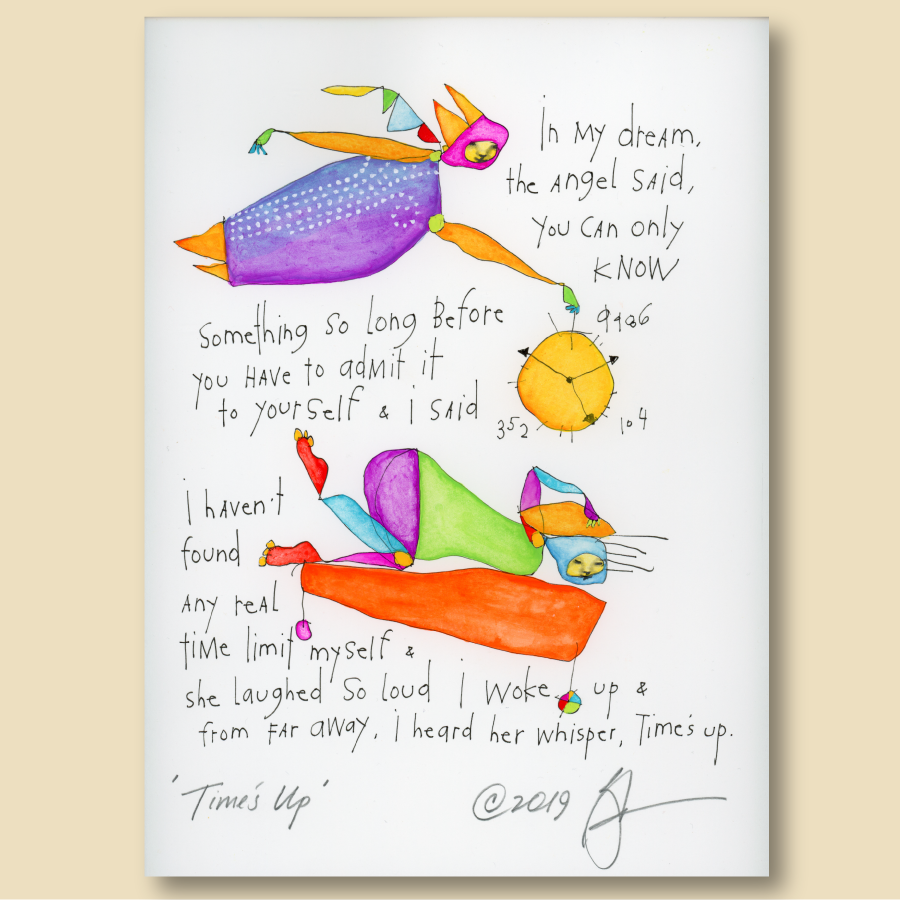 In my dream,
the angel said,
you can only
KNOW
something so long before
you have to admit it
to yourself & i said
9486
352
104
i haven't
found
any real
time limit myself &
she laughed so loud i woke up &
from far away, i heard her whisper, Time's up.
'Time's Up' ©2019